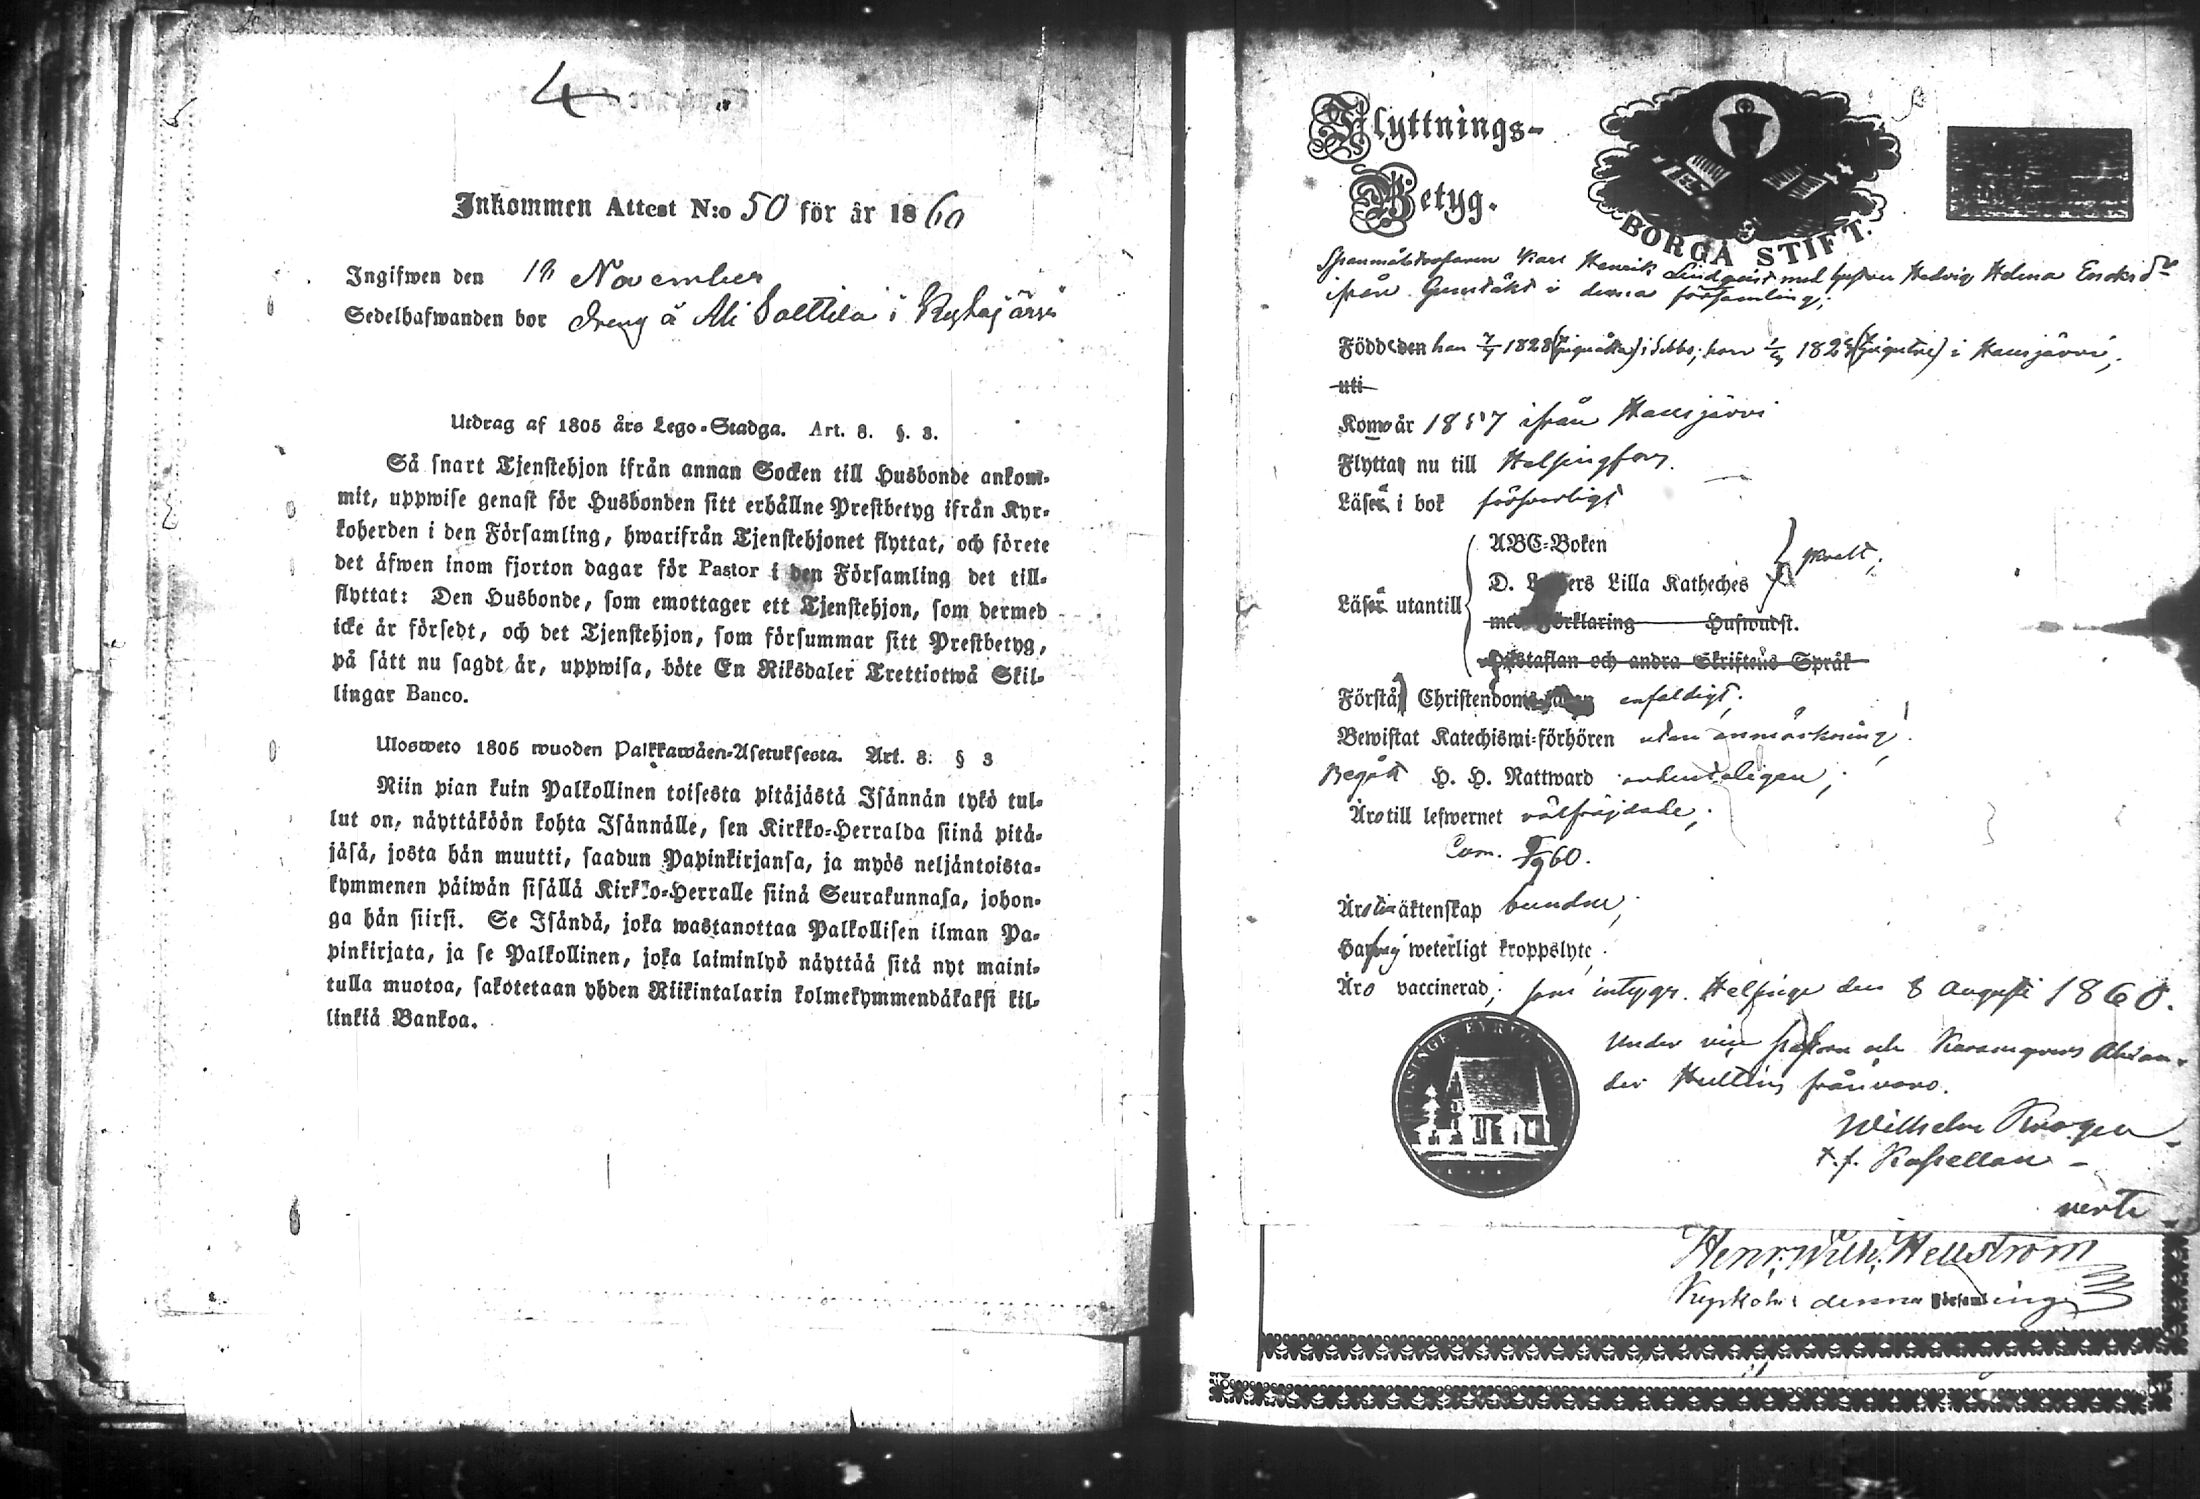 4
Inkommen Attest N:o 50 för år 1860
Ingifwen den 18 November
Sedelhafwanden bor dreng å Ali i
Utdrag af 1805 års Lego-Stadga. Art. 8. §. 3.
Så snart Tjenstehjon ifrån annan Socken till Husbonde ankom-
mit, uppwise genast för Husbonden sitt erhållne Prestbetyg ifrån Kyr-
koherden i den Församling, hwarifrån Tjenstehjonet flyttat, och förete
det äfwen inom fjorton dagar för Pastor i den Församling det till-
flyttat: Den Husbonde, som emottager ett Tjenstehjon, som dermed
icke är försedt, och det Tjenstehjon, som försummar sitt Prestbetyg,
på sätt nu sagdt är, uppwisa, böte En Riksdaler Trettiotwå Skil-
lingar Banco.
Ulosweto 1805 wuoden Palkkawäen-Asetuksesta. Art. 8. § 3
Niin pian kuin Palkollinen toisesta pitäjästä Isännän tykö tul-
lut on, näyttäköön kohta Isännälle, sen Kirkko-Herralda siinä pitä-
jäsä, josta hän muutti, saadun Papinkirjansa, ja myös neljäntoista-
kymmenen päiwän sisällä Kirkko-Herralle siinä Seurakunnasa, johon-
ga hän siirsi. Se Isändä, joka wastanottaa Palkollisen ilman Pa-
pinkirjata, ja se Palkollinen, joka laiminlyö näyttää sitä nyt maini-
tulla muotoa, sakotetaan yhden Riikintalarin kolmekymmendäkaksi kil-
linkiä Bankoa.
Flyttnings-
Betyg.
BORGÅ STIFT.
Karl Henrik Lindqvist med hustrun Hedvig Helena Enoksdr
ifrån Gumtäkt i denna församling;
Född den han 7/7 1828 (tjuguåtta) i Sibbo; hon 1828 i Hausjärvi;
uti
Kom år 1857 ifrån Hausjärvi
Flytta nu till Helsingfors.
Läser i bok försvarligt
ABC-Boken
D. Luthers Lilla Katheches svalt;
Läser utantill
med Förklaring Huswudst.
Hustaflan och andra Skriftens Språk
Förstår Christendoms-läran enfaldigt;
Bewistat Katechismi-förhören utan anmärkning;
Begått H. H. Nattward ordentligen;
Äro till lefwernet välfräjdade;
Com. 60.
Äro till äktenskap bundne;
Haf ej weterligt kroppslyte.
Äro vaccinerad; som intygr. Helsinge den 8 Augusti 1860.
Under vice pastorn och Alexan-
der Hultins frånvaro.
Wilhelm Krogen
t. f. Kapellan
verte
Henr. Wilh. Hellström
Kyrkoh. i denna Församling